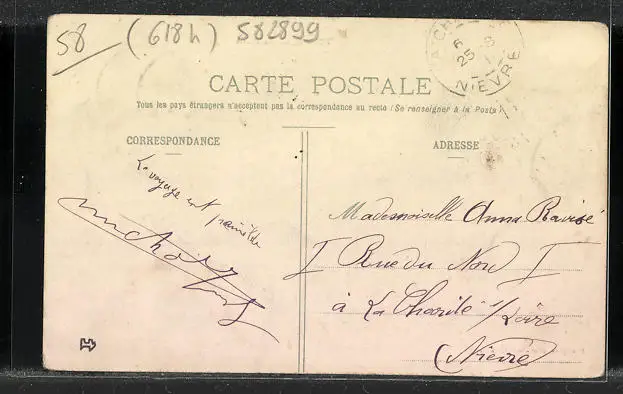 58
(618h)
582899
NIEVRE
CARTE POSTALE
Tous les pays étrangers n'acceptent pas la correspondance au recto (Se renseigner à la Poste)
CORRESPONDANCE
Le voyage est
ADRESSE
Mademoiselle Anna
I Rue du Nord I
à La Charité s/Loire
(Nièvre